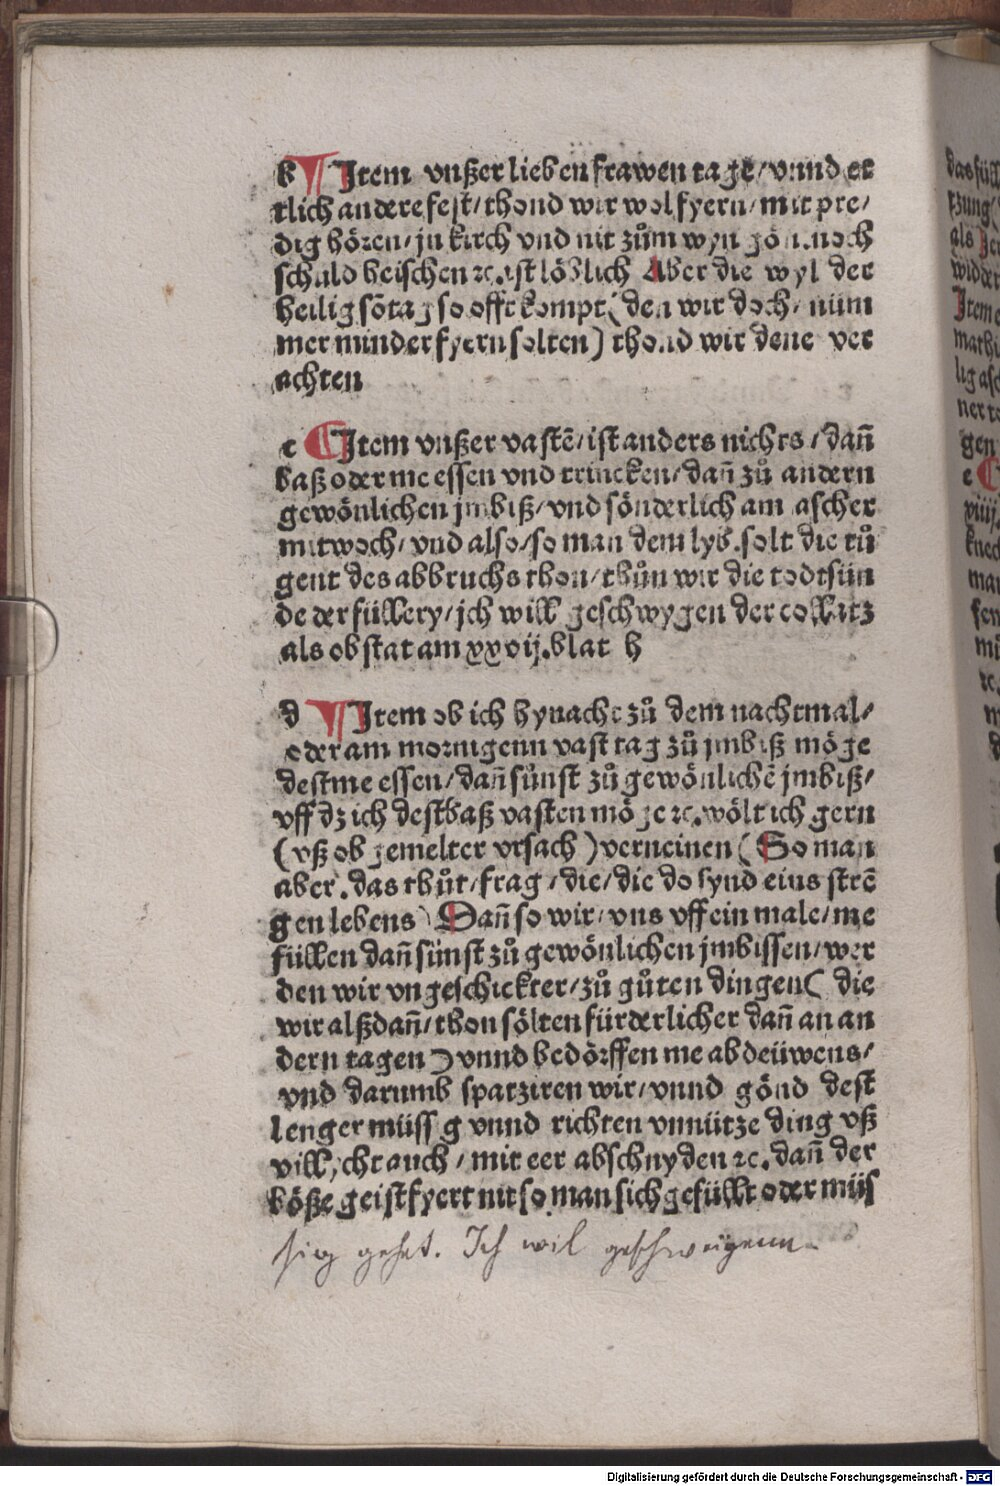 b ¶ Jtem vnßer lieben frawen tage/ vnnd et
tlich andere fest/ thond wir wol fyern/ mit pre/
dig hören/ jn kirch vnd nit zům wyn gön. noch
schuld heischen ⁊c. ist löblich Aber die wyl der
heilig sōtag so offt kompt (den wir doch/ nüm
mer minder fyern solten) thond wir dene ver
achten
c ¶ Jtem vnßer vastē/ ist anders nichts/ dañ
baß oder me essen vnd trincken/ dañ zů andern
gewönlichen jmbiß/ vnd sönderlich am ascher
mitwoch/ vnd also/ so man dem lyb. solt die tů
gent des abbruchs thon/ thůn wir die todtsün
de der füllery/ jch will geschwygen der collatz
als ob stat am xxvij. blat h
d ¶ Jtem ob ich hynacht zů dem nachtmal/
oder am mornigenn vast tag zů jmbiß möge
dest me essen/ dañ sůnst zů gewönlichē jmbiß/
vff dz ich dest baß vasten möge ⁊c. wölt ich gern
(vß ob gemelter vrsach) verneinen (So man
aber. das thůt/ frag/ die/ die do synd eins strē
gen lebens) Dañ so wir/ vns vff ein male/ me
füllen dañ sünst zů gewönlichen jmbissen/ wer
den wir vngeschickter/ zů gůten dingen (die
wir alßdañ/ thon sölten fürderlicher dañ an an
dern tagen) vnnd bedörffen me abdeüwens/
vnd darumb spatziren wir/ vnnd gönd dest
lenger müssig vnnd richten vnnütze ding vß
villycht auch/ mit eer abschnyden ⁊c. dañ der
böße geist fyert nit so man sich gefüllt oder müs
sig gehet. Ich wil geschweigenn
Digitalisierung gefördert durch die Deutsche Forschungsgemeinschaft - DFG